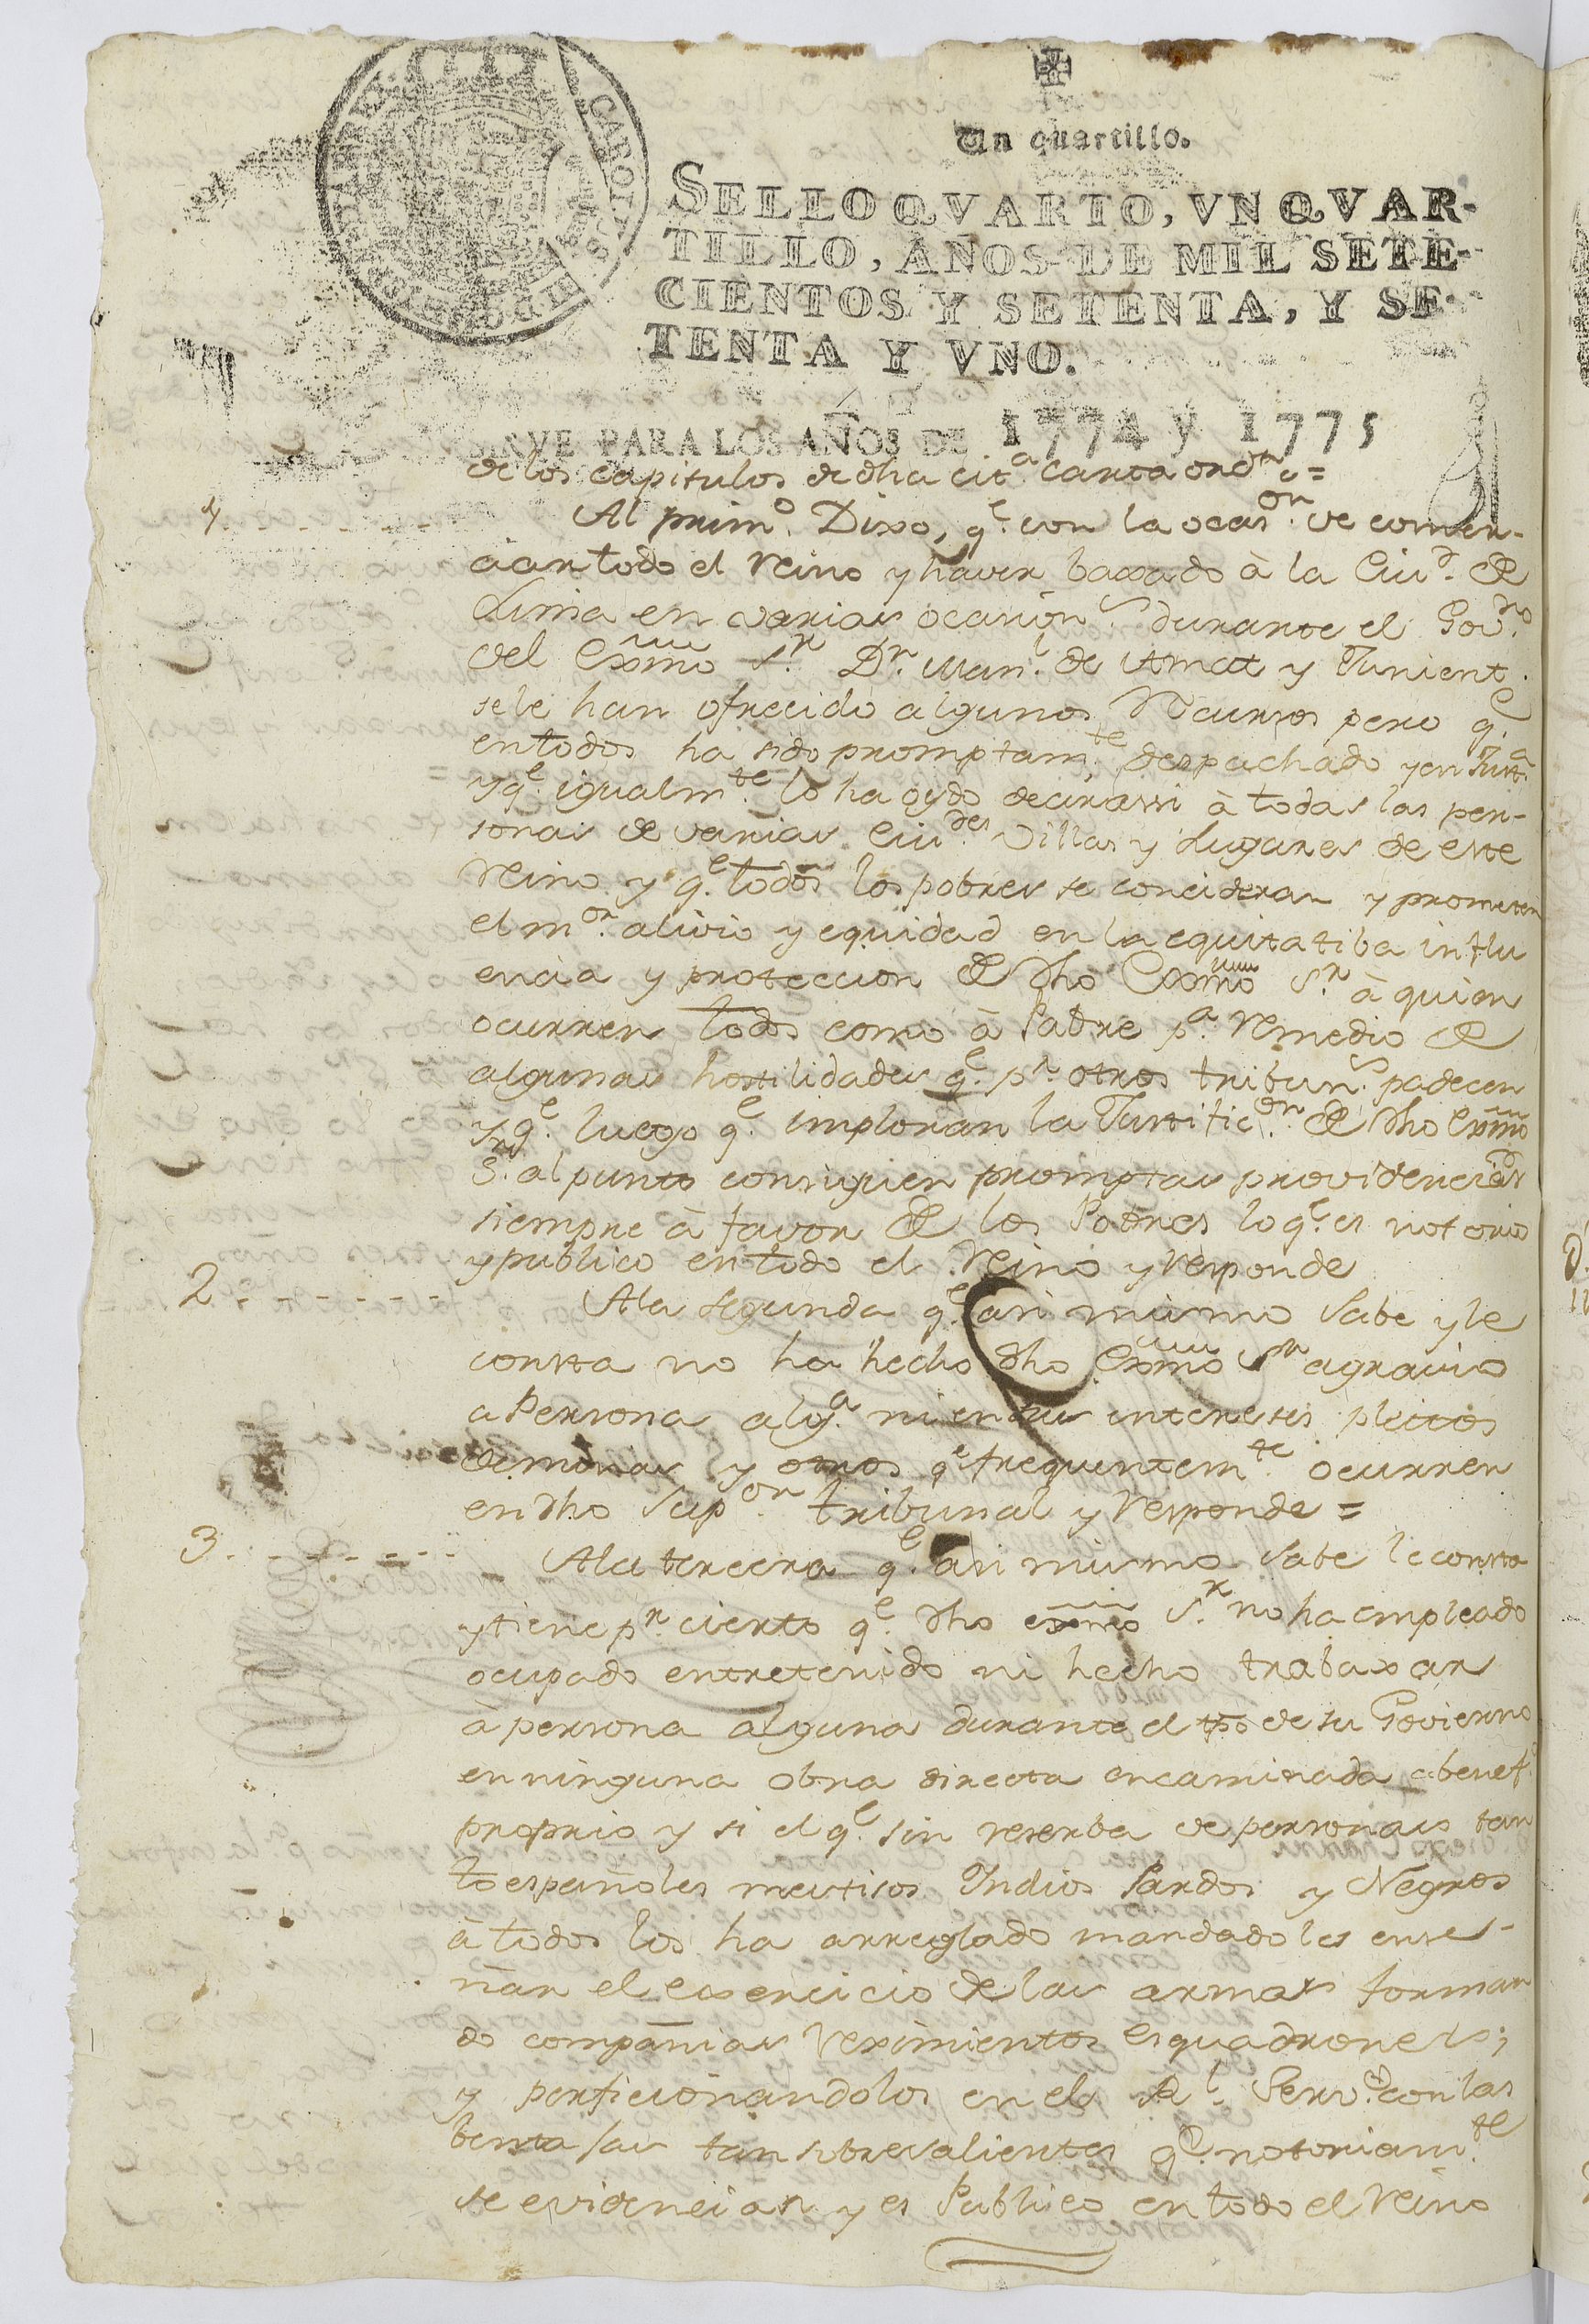 Un quartillo.
SELLO QVARTO, VN QVAR-
TILLO, AÑOS DE MIL SETE-
CIENTOS Y SETENTA, Y SE-
TENTA Y VNO.
CAROLUS
SIRVE PARA LOS AÑOS DE 1774 y 1775
de los capitulos de dha cit.ª carta ord.n &.=
1 Al prim.º Dixo, q.e con la ocas.on de comer-
ciar todo el Reino y haver baxado à la Ciu.d de
Lima en varias ocasion.s durante el Gov.no
del Exmo S.r D.n Man.l de Amat y Junient.
se le han ofrecido algunos Recursos pero q.e
en todos ha sido promptam.te despachado y en Just.ª
y q.e igualm.te lo ha oydo decir assi à todas las per-
sonas de varias Ciu.des Villas y Lugares de este
Reino y q.e todos los pobres se concideran y prometen
el m.or alivio y equidad en la equitatiba influ
encia y proteccion de dho Exmo S.r à quien
ocurren todos como à Padre p.ª remedio de
algunas hostilidades q.e p.r otros tribun.s padecen
y q.e luego q.e imploran la Justific.on de dho Exmo
S.r al punto consiguen promptas providencias
siempre à favor de los Pobres lo q.e es notorio
y publico en todo el Reino y responde
2 A la segunda q.e asi mismo Sabe y le
consta no ha hecho dho Exmo S.r agravio
a Persona alg.ª ni en sus intereses pleitos
de minas y otros q.e frequentem.te ocurren
en dho Sup.or tribunal y responde =
3 A la tercera q.e asi mismo Sabe le consta
y tiene p.r cierto q.e dho exmo S.r no ha empleado
ocupado entretenido ni hecho trabaxar
à persona alguna durante el tpo de su Govierno
en ninguna obra directa encaminada a benef.º
proprio y si el q.e sin reserba de personas tan
to españoles mestisos Indios Pardos y Negros
à todos los ha arreglado mandadoles ense-
ñar el exercicio de las armas forman
do compañias reximientos esquadrones;
y perficionandolos en el R.l Serv.º con las
bentajas tan sobresalientes q.e notoriam.te
se evidencian y es Publico en todo el Reino